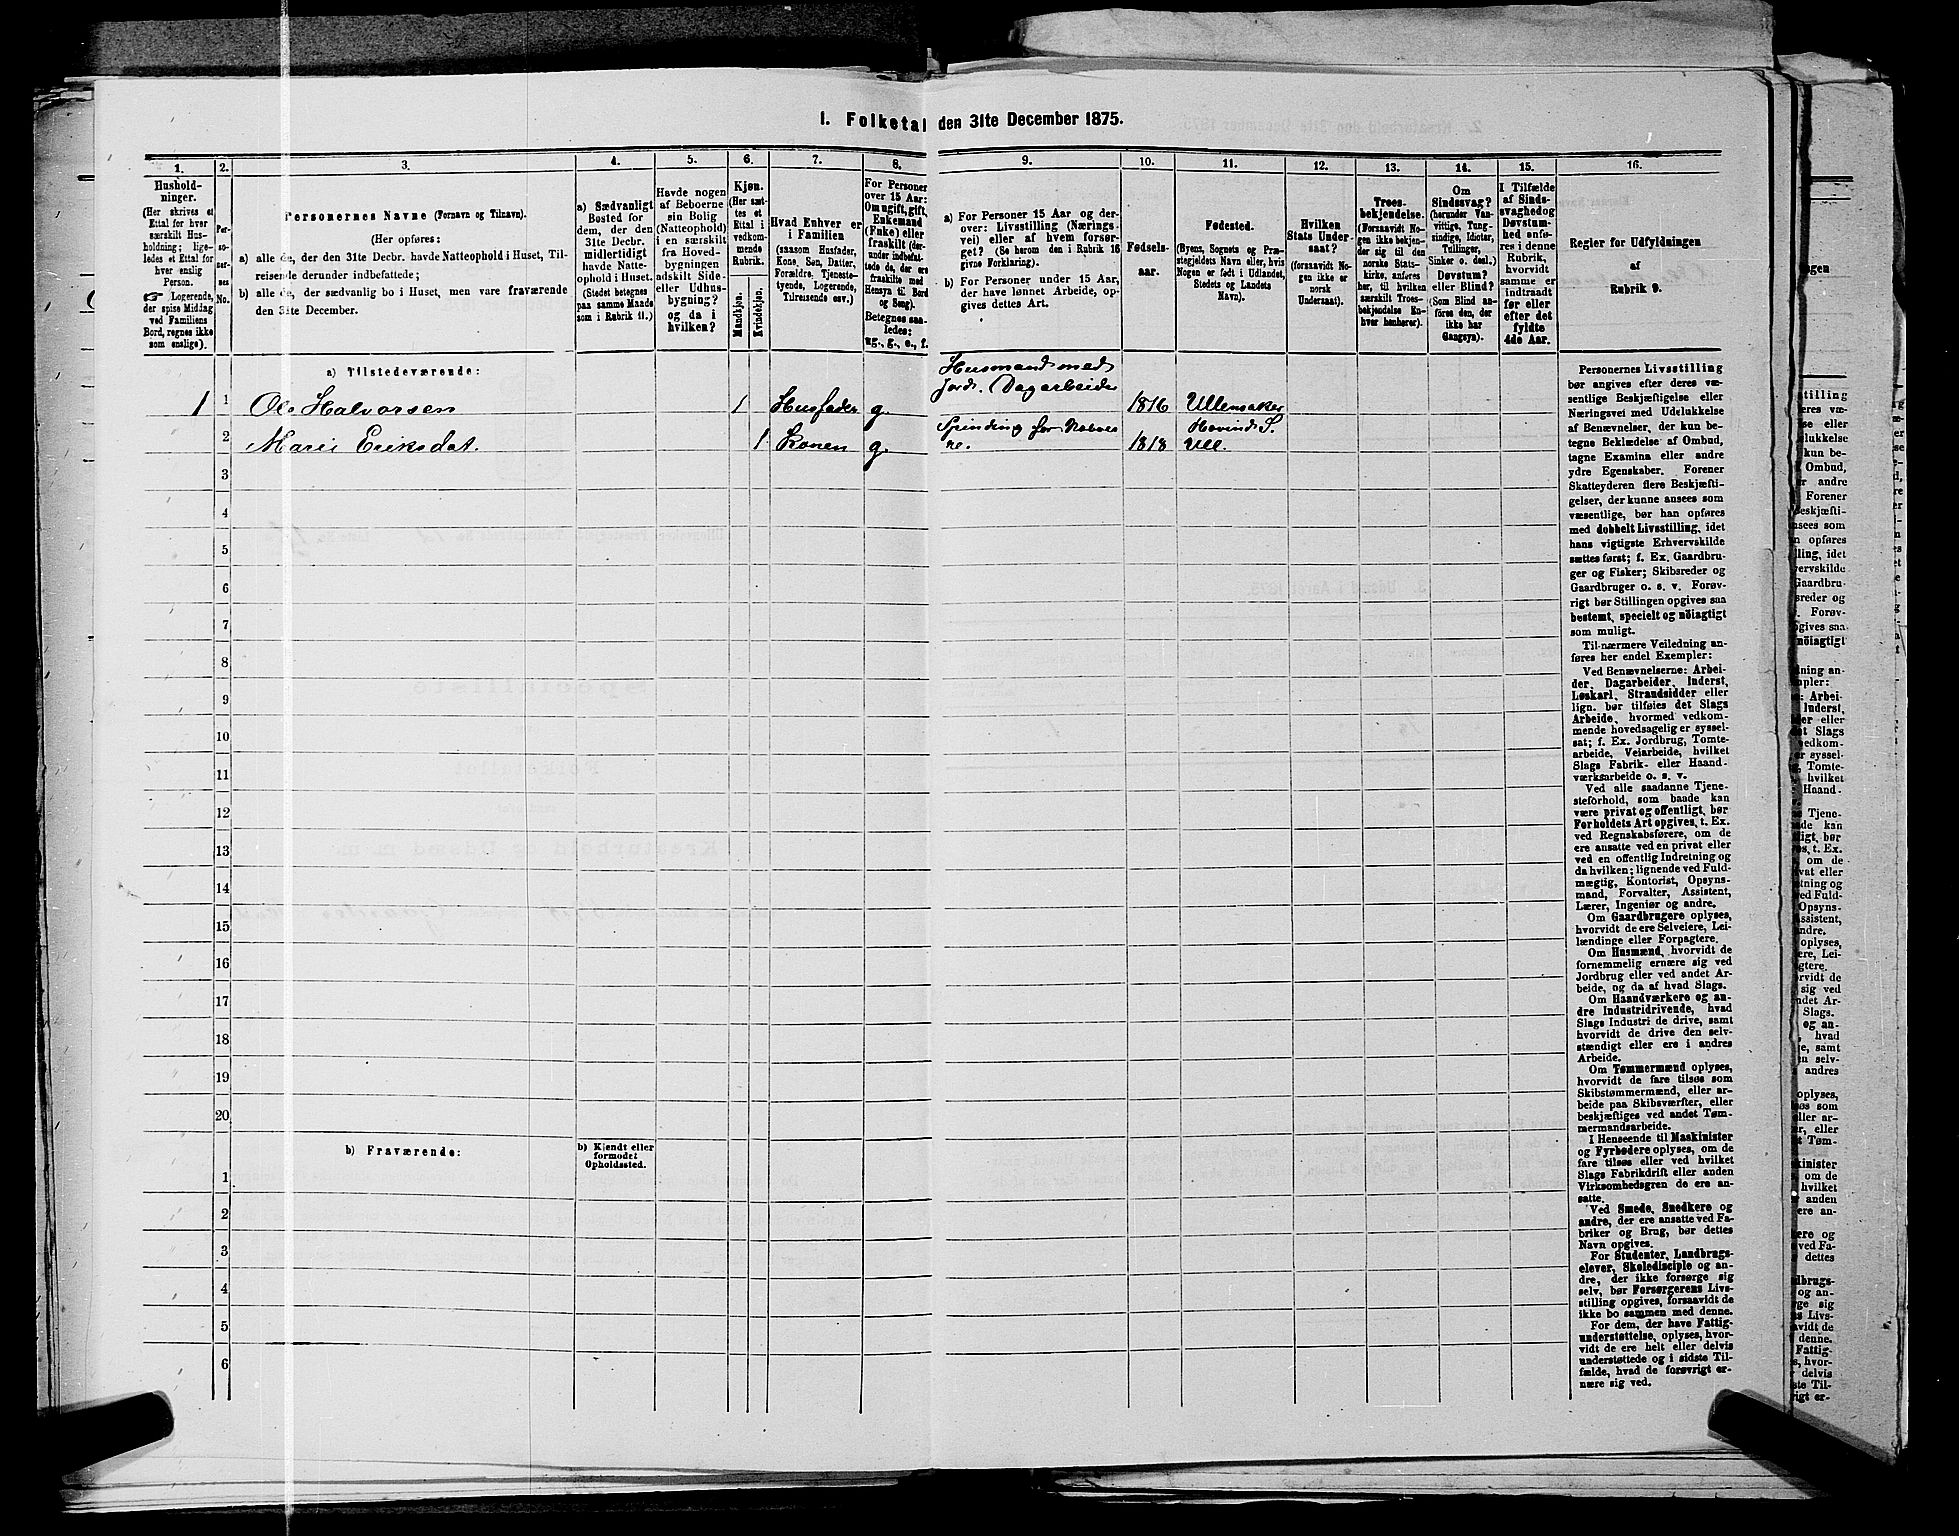 1. Folketal den 31te December 1875.
1. 2. 3. 4. 5. 6. 7. 8. 9. 10. 11. 12. 13. 14. 15. 16.
Hushold-
ninger.
(Her skrives et
Ettal for hver
særskilt Hus-
holdning; lige-
ledes et Ettal for
hver enslig
Person.
☞ Logerende,
der spise Middag
ved Familiens
Bord, regnes ikke
som enslige).
Per-
so-
ner-
nes
No.
Personernes Navne (Fornavn og Tilnavn).
(Her opføres:
a) alle de, der den 31te Decbr. havde Natteophold i Huset, Til-
reisende derunder indbefattede;
b) alle de, der sædvanlig bo i Huset, men vare fraværende
den 31te December.
a) Sædvanligt
Bosted for
dem, der den
31te Decbr.
midlertidigt
havde Natte-
ophold i Huset.
(Stedet betegnes
paa samme Maade
som i Rubrik 11.)
Havde nogen
af Beboerne
sin Bolig
(Natteophold)
i en særskilt
fra Hoved-
bygningen
adskilt Side-
eller Udhus-
bygning?
og da i
hvilken?
Kjøn.
(Her sæt-
tes et
Ettal i
vedkom-
mende
Rubrik.
Mandkjøn.
Kvindekjøn.
Hvad Enhver er
i Familien
(saasom Husfader,
Kone, Søn, Datter,
Forældre, Tjeneste-
tyende, Logerende,
Tilreisende osv.)
For Personer
over 15 Aar:
Om ugift, gift,
Enkemand
(Enke) eller
fraskilt (der-
under indbefat-
tede de, der ere
fraskilte med
Hensyn til Bord
og Seng).
Betegnes saa-
ledes:
ug., g., e., f.
a) For Personer 15 Aar og der-
over: Livsstilling (Nærings-
vei) eller af hvem forsør-
get? (Se herom den i Rubrik 16
givne Forklaring).
b) For Personer under 15 Aar,
der have lønnet Arbeide, op-
gives dettes Art.
Fødsels-
aar.
Fødested.
(Byens, Sognets og Præ-
stegjeldets Navn eller, hvis
Nogen er født i Udlandet,
Stedets og Landets
Navn).
Hvilken
Stats Under-
saat?
(forsaavidt No-
gen ikke er
norsk
Undersaat).
Troes-
bekjendelse.
(Forsaavidt No-
gen ikke bekjen-
der sig til den
norske Stats-
kirke, anføres
her, til hvilken
særskilt Troes-
bekjendelse En-
hver henhører).
Om
Sindssvag?
(herunder Van-
vittige, Tung-
sindige, Idioter,
Tullinger,
Sinker o. desl.)
Døvstum?
eller Blind?
(Som Blind an-
føres den, der
ikke har
Gangsyn).
I Tilfælde
af Sinds-
svaghed og
Døvstum-
hed anfø-
res i denne
Rubrik,
hvorvidt
samme er
indtraadt
før eller
efter det
fyldte
4de Aar.
Regler for Udfyldningen
af
Rubrik 9.
a) Tilstedeværende:
1 1 Ole Halvorsen 1 Husfader g. Husmand med
Jord. Dagarbeider 1816 Ullensaker
2 Marie Eriksdat. 1 Konen g. Spinding for
1818 Hovind S.
Ull.
3
4
5
6
7
8
9
10
11
12
13
14
15
16
17
18
19
20
b) Fraværende:
b) Kjendt eller
formodet
Opholdssted.
1
2
3
4
5
6
Personernes Livsstilling
bør angives efter deres væ-
sentlige Beskjæftigelse eller
Næringsvei med Udelukkelse
af Benævnelser, der kun be-
tegne Beklædelse af Ombud,
tagne Examina eller andre
ydre Egenskaber. Forener
Skatteyderen flere Beskjæfti-
gelser, der kunne ansees som
væsentlige, bør han opføres
med dobbelt Livsstilling, idet
hans vigtigste Erhvervskilde
sættes først; f. Ex. Gaardbru-
ger og Fisker; Skibsreder og
Gaardbruger o. s. v. Forøv-
rigt bør Stillingen opgives saa
bestemt, specielt og nöiagtigt
som muligt.
Til nærmere Veiledning an-
føres her endel Exempler:
Ved Benævnelserne: Arbei-
der, Dagarbeider, Inderst,
Løskarl, Strandsidder eller
lign. bør tilføies det Slags
Arbeide, hvormed vedkom-
mende hovedsagelig er syssel-
sat; f. Ex. Jordbrug, Tomte-
arbeide, Veiarbeide, hvilket
Slags Fabrik- eller Haand-
værksarbeide o. s. v.
Ved alle saadanne Tjene-
steforhold, som baade kan
være privat og offentligt, bør
Forholdets Art opgives, t. Ex.
ved Regnskabsførere, om de
ere ansatte ved en privat eller
ved en offentlig Indretning og
da hvilken; lignende ved Fuld-
mægtig, Kontorist, Opsyns-
mand, Forvalter, Assistent,
Lærer, Ingeniør og andre.
Om Gaardbrugere oplyses,
hvorvidt de ere Selveiere, Lei-
lændinge eller Forpagtere.
Om Husmænd, hvorvidt de
fornemmelig ernære sig ved
Jordbrug eller ved andet Ar-
beide, og da af hvad Slags.
Om Haandværkere og an-
dre Industridrivende, hvad
Slags Industri de drive, samt
hvorvidt de drive den selv-
stændigt eller ere i andres
Arbeide.
Om Tømmermænd oplyses,
hvorvidt de fare tilsøs som
Skibstømmermænd, eller ar-
beide paa Skibsværfter, eller
beskjæftiges ved andet Tøm-
mermandsarbeide.
I Henseende til Maskinister
og Fyrbødere oplyses, om de
fare tilsøs eller ved hvilket
Slags Fabrikdrift eller anden
Virksomhedsgren de ere an-
satte.
Ved Smede, Snedkere og
andre, der ere ansatte ved Fa-
briker og Brug, bør dettes
Navn opgives.
For Studenter, Landbrugs-
elever, Skoledisciple og an-
dre, der ikke forsørge sig
selv, bør Forsørgerens Livs-
stilling opgives, forsaavidt de
ikke bo sammen med denne.
For dem, der have Fattig-
understøttelse, oplyses, hvor-
vidt de ere helt eller delvis
understøttede og i sidste Til-
fælde, hvad de forøvrigt er-
nære sig ved.